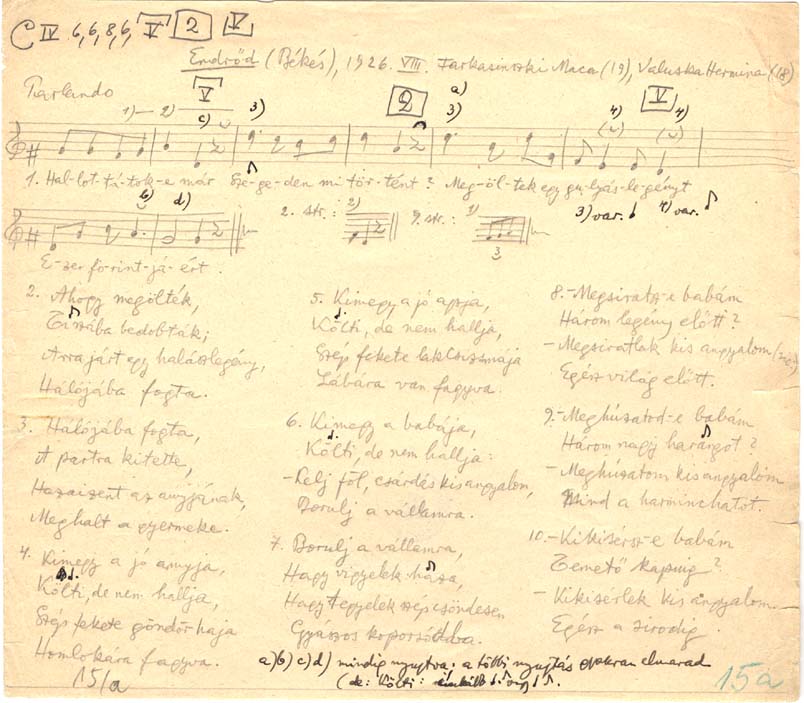 C IV 6,6,8,6, V 2 V
Endrőd (Békés), 1926. VIII. Farkasinszki Maca (19), Valuska Hermina (18)
Parlando
V 2 a) V
1)— 2) c) 3) 3) 4) 4)
1. Hal-lot-tá-tok-e már Sze-ge-den mi tör-tént? Meg-öl-tek egy gu-lyás-le-gényt
b) d) 2. str.: 2) 9. str.: 1) 3) var. 4) var.
3
E-zer fo-rint-já-ért.
2. Ahogy megölték,
Tiszába bedobták;
Arra járt egy halászlegény,
Hálójába fogta.
3. Hálójába fogta,
A partra kitette,
Hazaizent az anyjának,
Meghalt a gyermeke.
4. Kimegy a jó anyja,
Költi, de nem hallja,
Szép fekete göndör haja
Homlokára fagyva.
15/a
5. Kimegy a jó apja,
Költi, de nem hallja,
Szép fekete lakkcsizmája
Lábára van fagyva.
6. Kimegy a babája,
Költi, de nem hallja:
-Kelj föl, csárdás kisangyalom,
Borulj a vállamra.
7. Borulj a vállamra,
Hagy vigyelek háza,
Hagy tegyelek szép csöndesen
Gyászos koporsódba.
8.-Megsiratsz-e babám
Három legény előtt?
-Megsiratlak kis angyalom
Egész világ előtt.
9.-Meghúzatod-e babám
Három nagy harangot?
-Meghúzatom kis angyalom
Mind a harminchatot.
10.-Kikisérsz-e babám
Temető kapuig?
- Kikisérlek kis angyalom
Egész a sirodig.
a) b) c) d) mindig nyujtva: a többi nyujtás gyakran elmarad
(de: Költi: inkább
15a